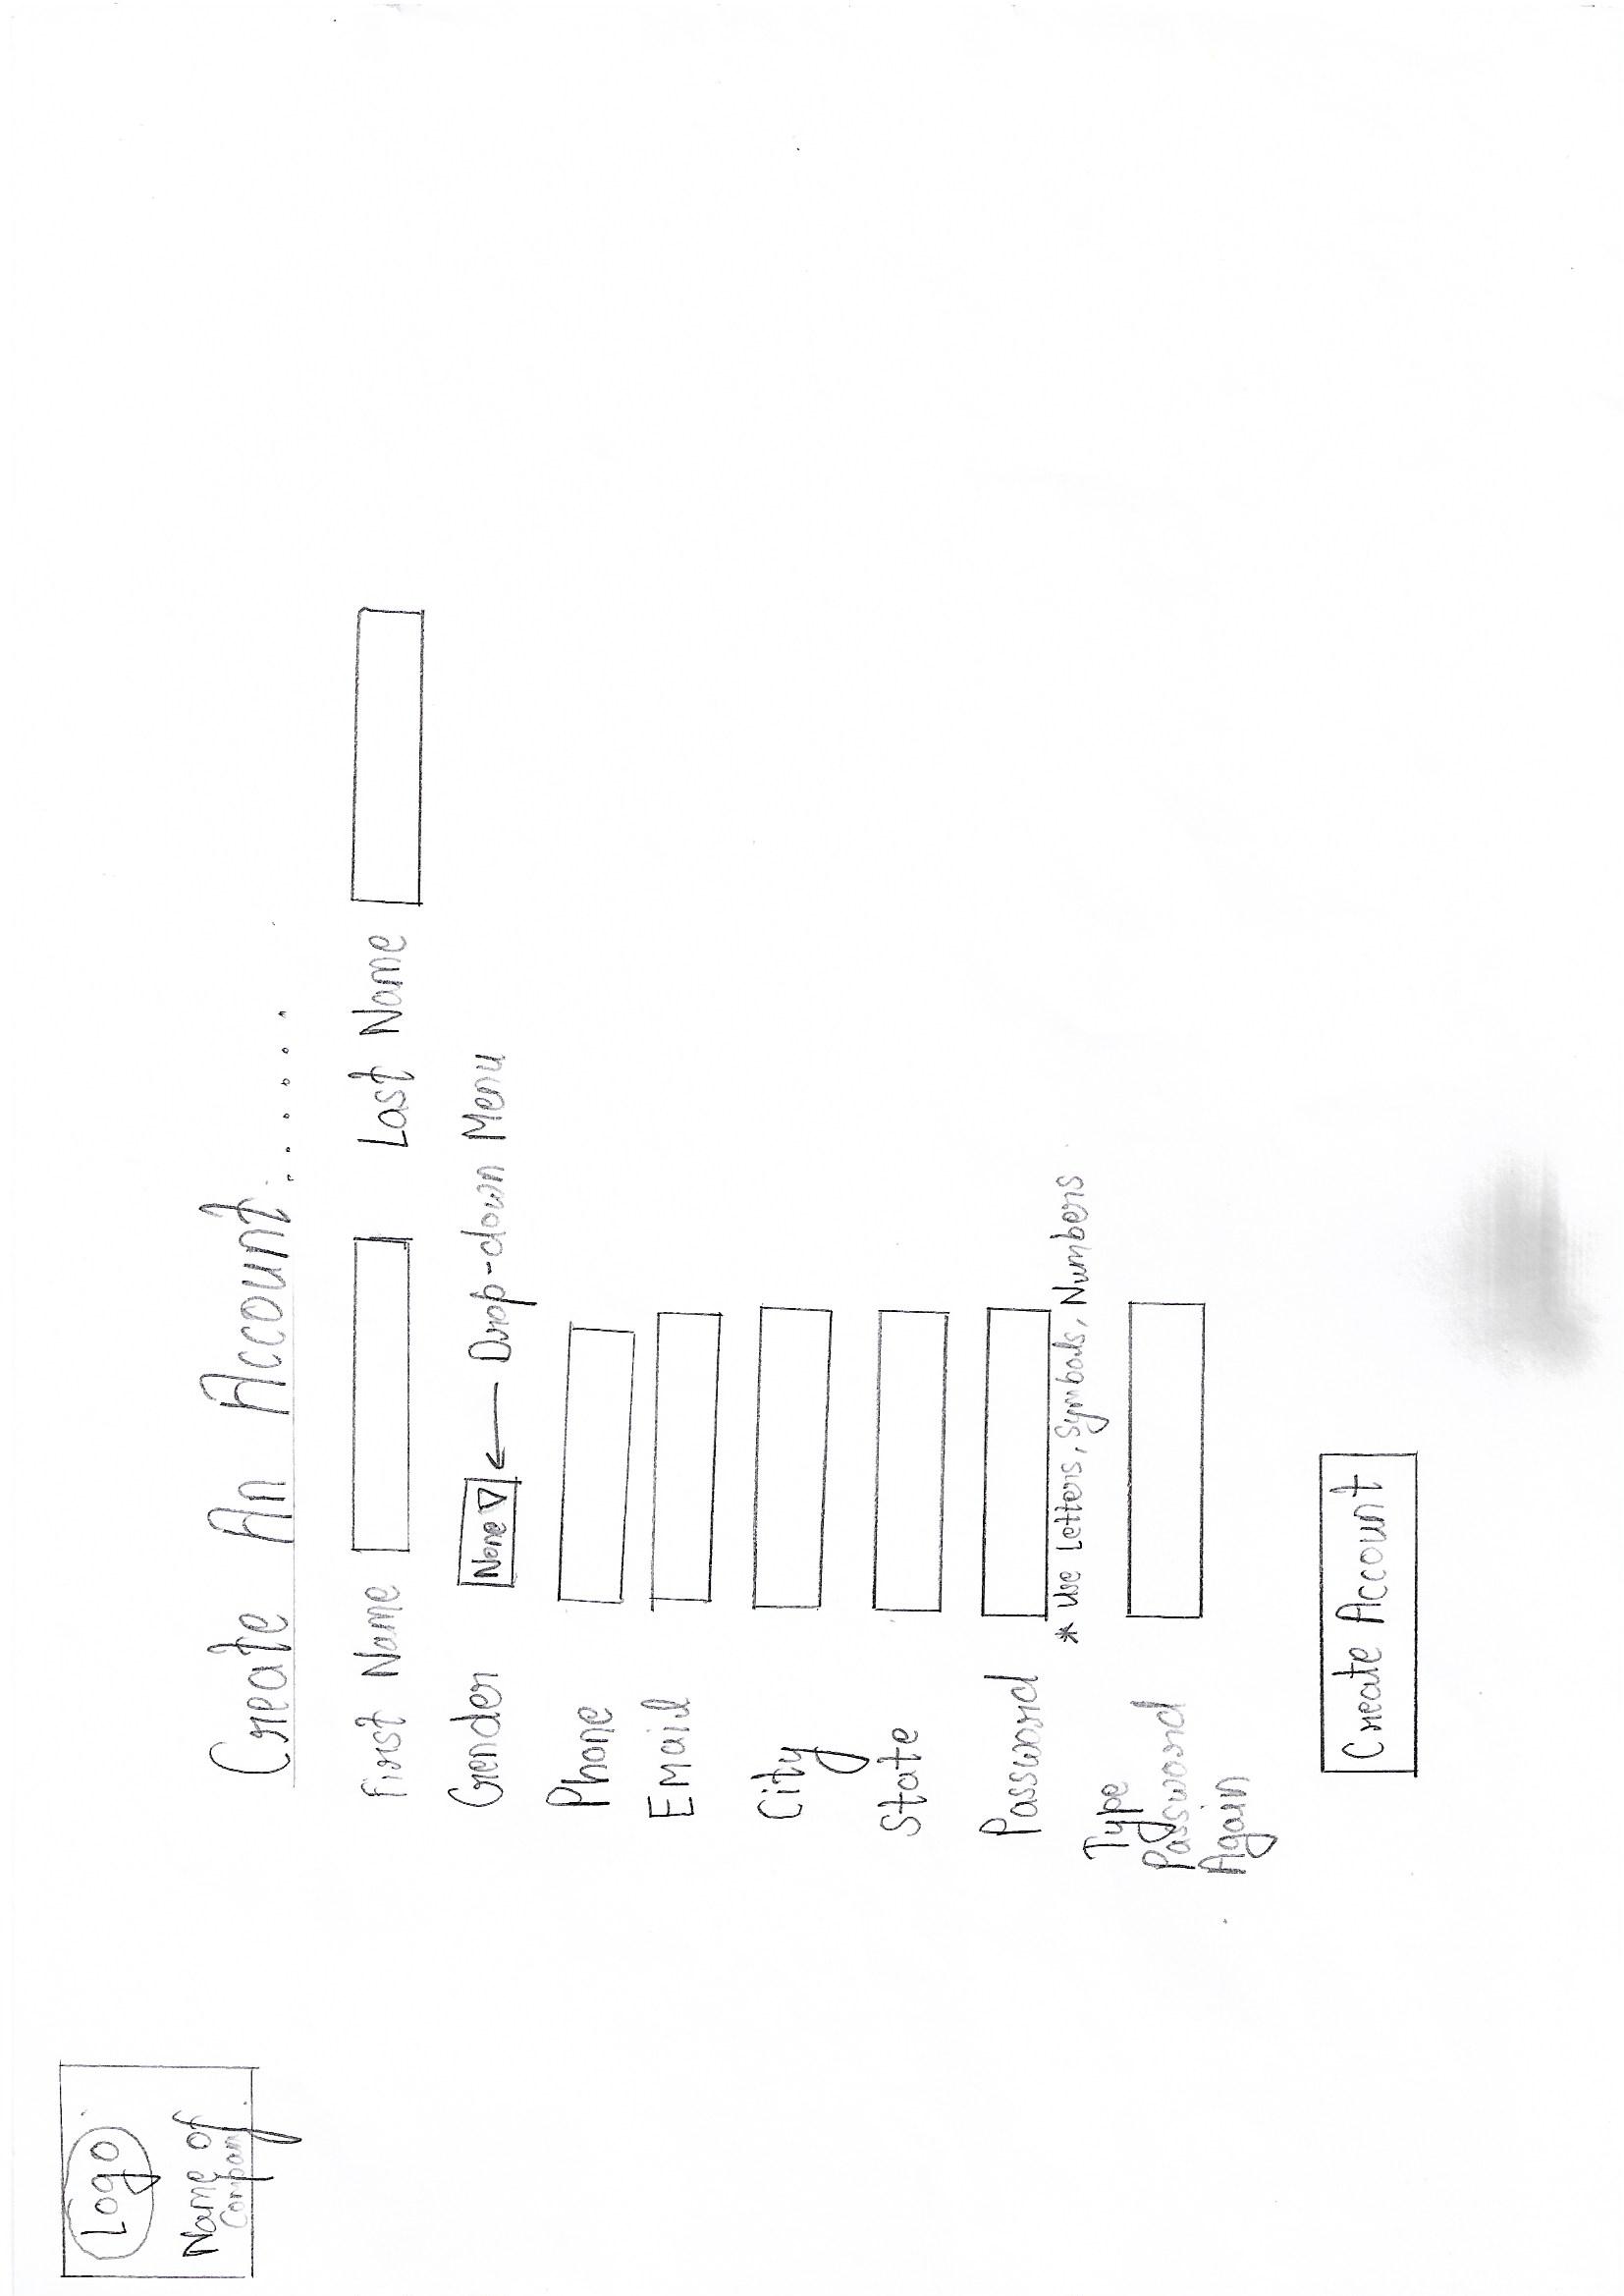 Logo
Name of
Company
Create An Account......
First Name Last Name
Gender None Drop-down Menu
Phone
Email
City
State
Password
* Use Letters, Symbols, Numbers
Type
Password
Again
Create Account